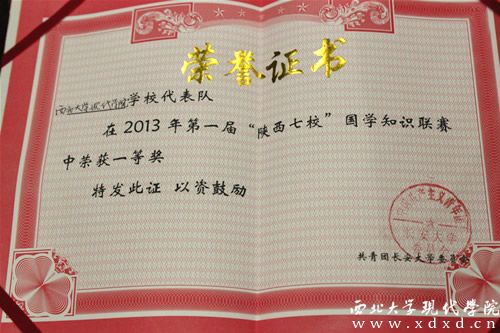 荣誉证书
西北大学现代学院学校代表队
在2013年第一届“陕西七校”国学知识联赛
中荣获一等奖
特发此证 以资鼓励
长安大学
共青团长安大学委员会
西北大学现代学院
www.xdxd.cn